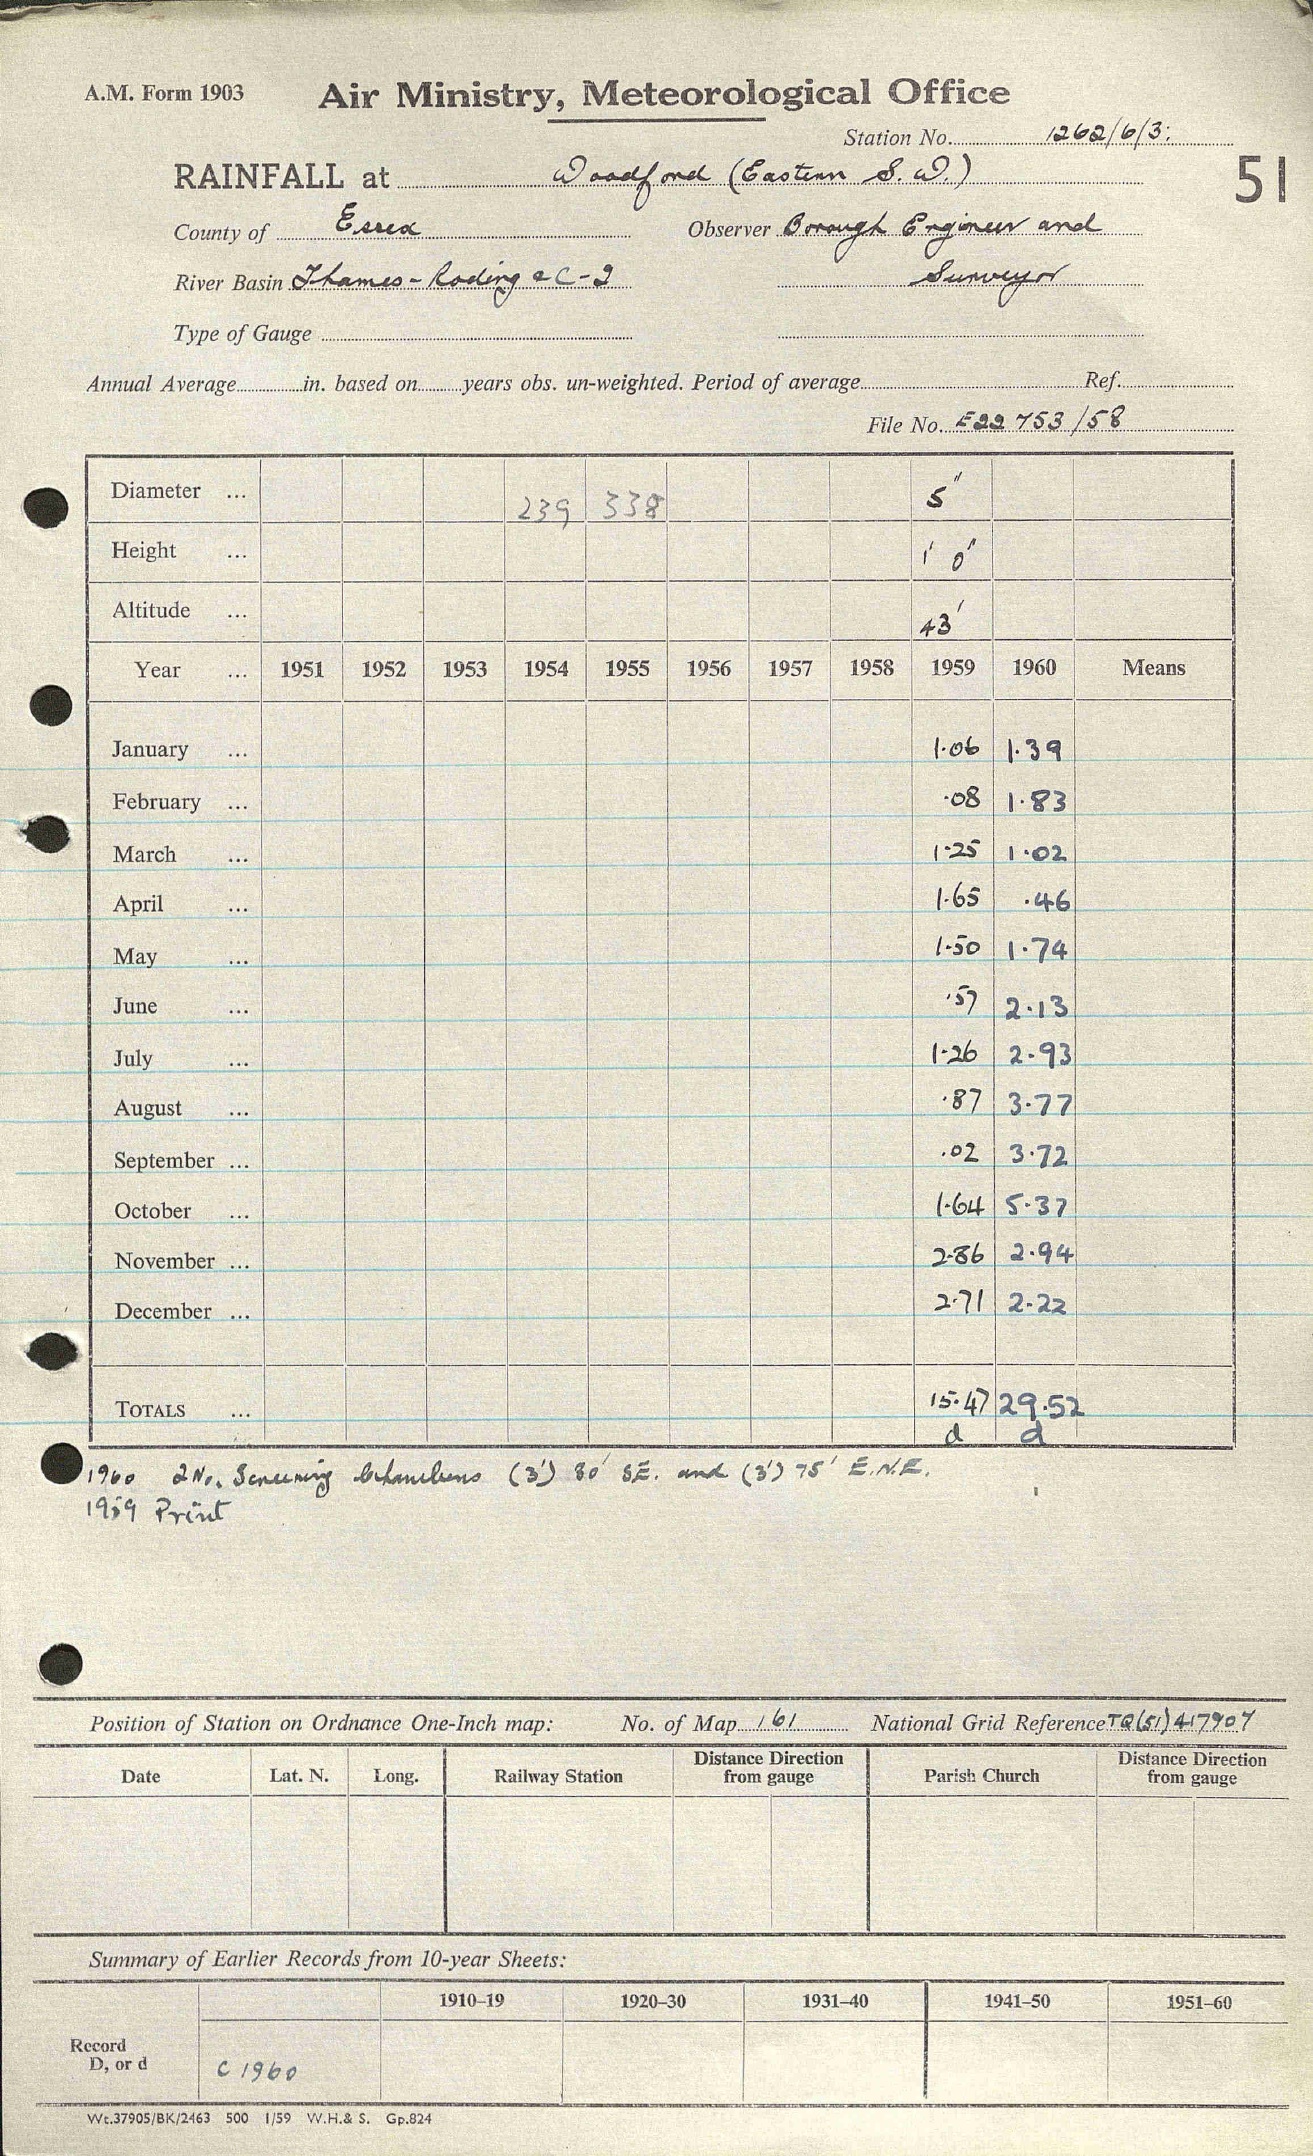 A.M. Form 1903
Air Ministry, Meteorological Office
Station No. 1262/6/3.
RAINFALL at Woodford (Eastern S.W.)
51
County of Essex Observer Borough Engineer and
River Basin Thames-Roding & C-2 Surveyor
Type of Gauge
Annual Average in. based on years obs. un-weighted. Period of average Ref.
File No. E22753/58
Diameter ... 239 338 5"
Height ... 1' 0"
Altitude ... 43'
Year ... 1951 1952 1953 1954 1955 1956 1957 1958 1959 1960 Means
January ... 1.06 1.39
February ... .08 1.83
March ... 1.25 1.02
April ... 1.65 .46
May ... 1.50 1.74
June ... .57 2.13
July ... 1.26 2.93
August ... .87 3.77
September ... .02 3.72
October ... 1.64 5.37
November ... 2.86 2.94
December ... 2.71 2.22
TOTALS ... 15.47 29.52
d d
1960 2 No. Screening Chambers (3') 80' SE. and (3') 75' E.N.E.
1959 Print
Position of Station on Ordnance One-Inch map: No. of Map 161 National Grid Reference TQ(51)417907
Date Lat. N. Long. Railway Station Distance Direction from gauge Parish Church Distance Direction from gauge
Summary of Earlier Records from 10-year Sheets:
1910–19 1920–30 1931–40 1941–50 1951–60
Record
D, or d C 1960
Wt.37905/BK/2463 500 1/59 W.H.& S. Gp.824